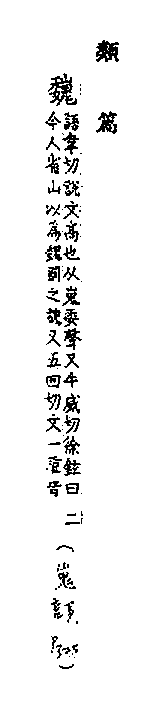 類篇
魏
語韋切說文高也从嵬委聲又牛威切徐鉉曰
今人省山以為魏國之魏又五回切文一重音
二
(嵬